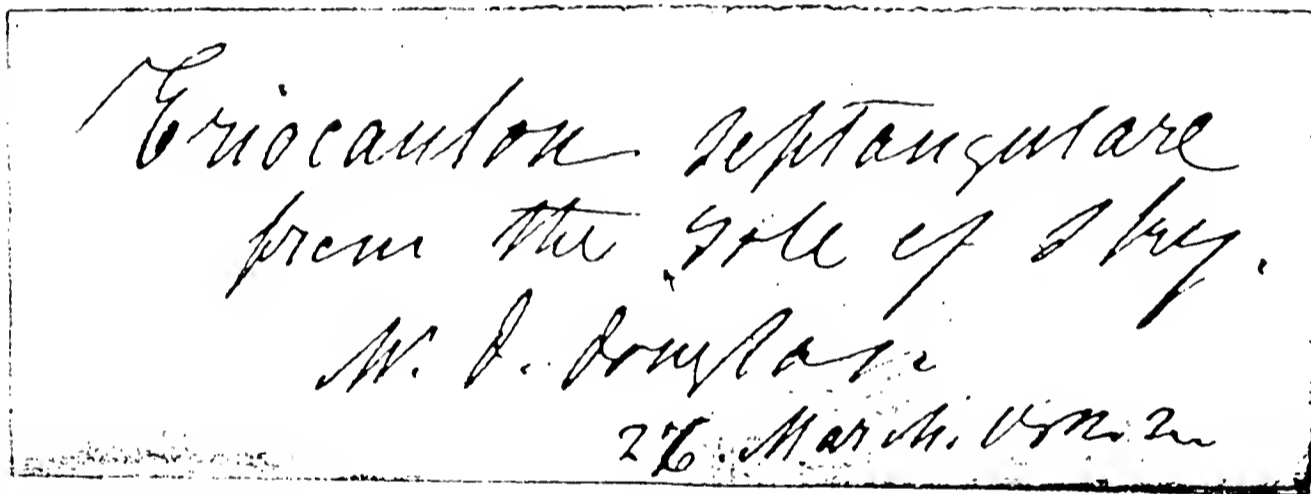 Eriocaulon septangulare
from the Isle of Sky.
W. D. Douglas
27. March.